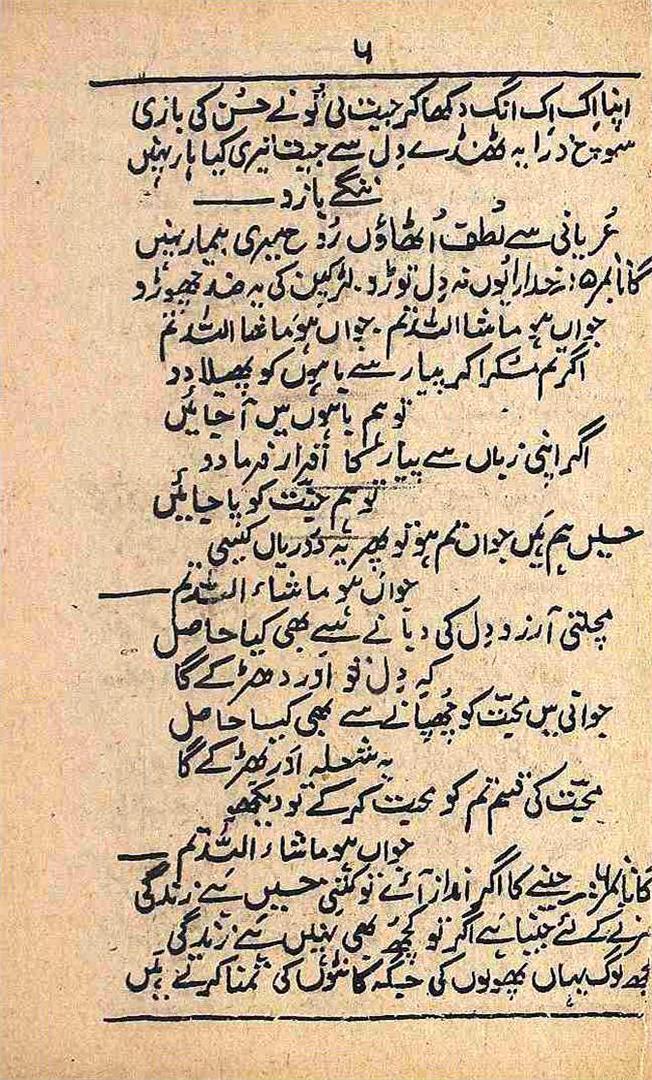 ۵
اپنا اِک اِک انگ دکھا کر جیت لی تُو نے حُسن کی بازی
سوچ ذرا یہ ٹھنڈے دِل سے جیت تیری کیا ہار نہیں
ننگے بازو ———
عُریانی سے لُطف اُٹھاؤں رُوح میری بیمار نہیں
گانا نمبر ۵: خدارا یُوں نہ دِل توڑو۔ لڑکپن کی یہ ضد چھوڑو
جواں ہو ماشا اللہ تم ۔ جواں ہو ماشا اللہ تم
اگر تم مسکرا کر پیار سے باہوں کو پھیلا دو
تو ہم باہوں میں آ جائیں
اگر اپنی زباں سے پیار کا اقرار فرما دو
تو ہم جنّت کو پا جائیں
حسیں ہم ہَیں جواں تم ہو تو پھر یہ دُوریاں کیسی
جواں ہو ماشاء اللہ تم ———
مچلتی آرزو دِل کی دبانے سے بھی کیا حاصل
کہ دِل تو اور دھڑکے گا
جوانی میں محبّت کو چُھپانے سے بھی کیا حاصل
یہ شعلہ اور بھڑکے گا
محبّت کی قسم تم کو محبت کر کے تو دیکھو
جواں ہو ماشاء اللہ تم —
گانا نمبر ۶: جینے کا اگر انداز آئے تو کتنی حسیں ہَے زندگی
مرنے کے لئے جینا ہَے اگر تو کچھ بھی نہیں ہَے زندگی
کچھ لوگ یہاں پھولوں کی جگہ کانٹوں کی تمنا کرتے ہَیں